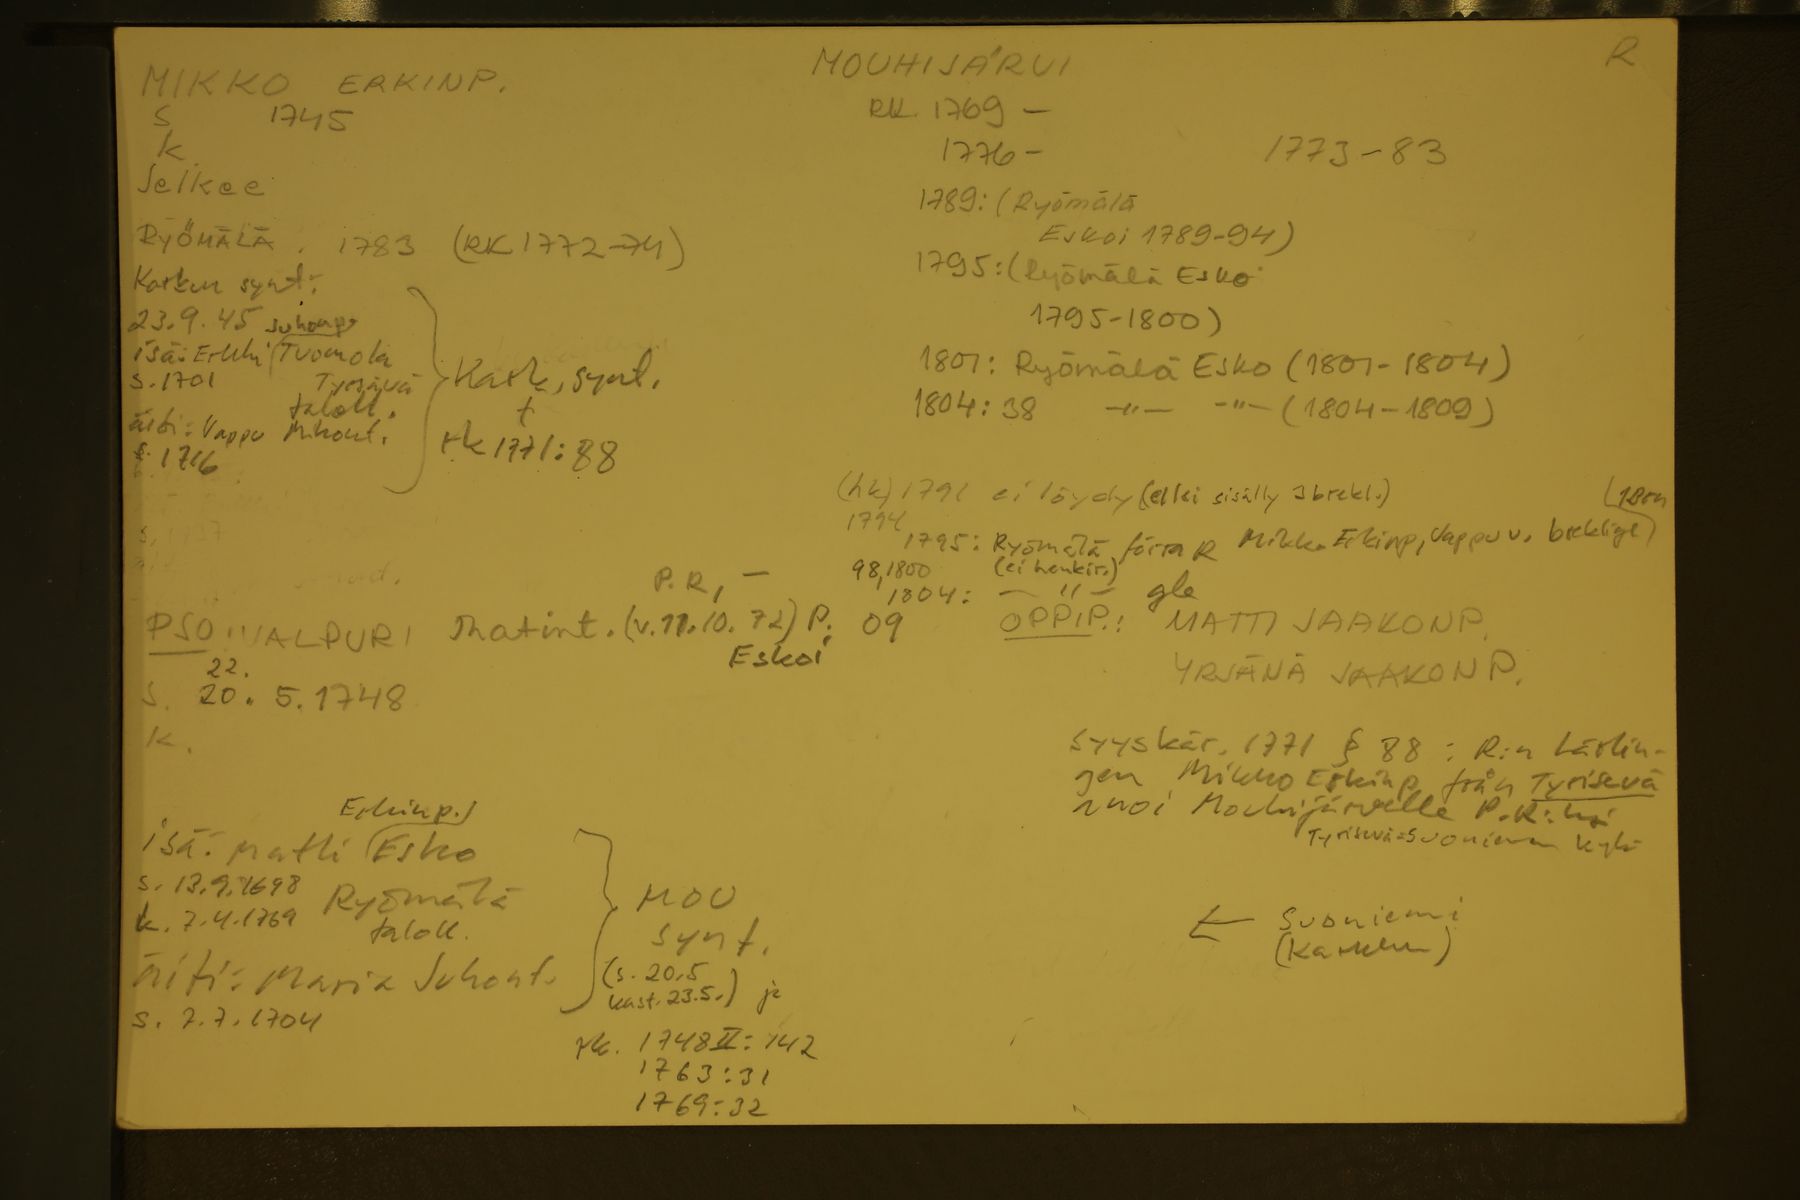 MIKKO ERKINP.
S 1745
k
Selkee
RYÖMÄLÄ. 1783 (RK 1772-74)
Karkun synt:
23.9.45 Juhonp.
isä: Erkki Tuomola
s. 1701 Tyrisevä
taloll.
äiti: Vappu Mikont.
s. 1716
Kark. synt.
+
rk 1771: 88
s. 1737
P.R, —
PSO: VALPURI Matint. (v. 11.10.72) P.
Eskoi
22.
s. 20. 5. 1748
k.
Erkinp.
isä: Matti Esko
s. 13.9.1698 Ryömälä
k. 7.4.1769 taloll.
äiti: Maria Juhont.
s. 2.7.1704
MOU
synt.
(s. 20.5
kast. 23.5.) ja
rk. 1748 II: 142
1763: 31
1769: 32
MOUHIJÄRVI
R
RK. 1769 —
1776 — 1773-83
1789: (Ryömälä
Eskoi 1789-94)
1795: (Ryömälä Esko
1795-1800)
1801: Ryömälä Esko (1801-1804)
1804: 38 —"— —"— (1804-1809)
(hk) 1791 ei löydy (ellei sisälly 3 brekl.)
1794
1795: Ryömälä, förra R Mikko Erkinp, Vappu v. bräklige
(ei henkir.)
98, 1800
1804: —"— gle
09 OPPIP.: MATTI JAAKONP.
YRJÄNÄ JAAKONP.
syyskär. 1771 § 88: R:n Lärlin-
gen Mikko Erkinp från Tyrisevä
nuoi Mouhijärvelle P.R:ksi
Tyrisevä = Suoniemen kylä
← Suoniemi
(Karkku)